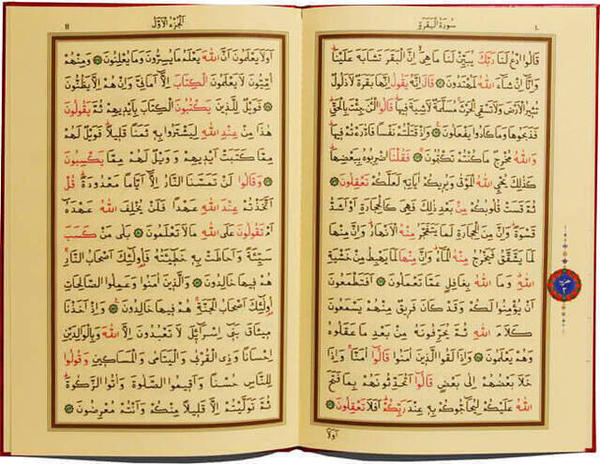 سُورَةُ الْبَقَرَةِ
قَالُوا ادْعُ لَنَا رَبَّكَ يُبَيِّنْ لَنَا مَا هِيَ اِنَّ الْبَقَرَ تَشَابَهَ عَلَيْنَا
وَاِنَّا اِنْ شَاءَ اللّٰهُ لَمُهْتَدُونَ قَالَ اِنَّهُ يَقُولُ اِنَّهَا بَقَرَةٌ لَا ذَلُولٌ
تُثِيرُ الْاَرْضَ وَلَا تَسْقِي الْحَرْثَ مُسَلَّمَةٌ لَا شِيَةَ فِيهَا قَالُوا الْـٰٔنَ جِئْتَ بِالْحَقِّ
فَذَبَحُوهَا وَمَا كَادُوا يَفْعَلُونَ وَاِذْ قَتَلْتُمْ نَفْسًا فَادّٰرَءْتُمْ فِيهَا
وَاللّٰهُ مُخْرِجٌ مَا كُنْتُمْ تَكْتُمُونَ فَقُلْنَا اضْرِبُوهُ بِبَعْضِهَا
كَذٰلِكَ يُحْيِ اللّٰهُ الْمَوْتٰى وَيُرِيكُمْ اٰيَاتِهِ لَعَلَّكُمْ تَعْقِلُونَ
ثُمَّ قَسَتْ قُلُوبُكُمْ مِنْ بَعْدِ ذٰلِكَ فَهِيَ كَالْحِجَارَةِ اَوْ اَشَدُّ
قَسْوَةً وَاِنَّ مِنَ الْحِجَارَةِ لَمَا يَتَفَجَّرُ مِنْهُ الْاَنْهَارُ وَاِنَّ مِنْهَا
لَمَا يَشَّقَّقُ فَيَخْرُجُ مِنْهُ الْمَاءُ وَاِنَّ مِنْهَا لَمَا يَهْبِطُ مِنْ خَشْيَةِ
اللّٰهِ وَمَا اللّٰهُ بِغَافِلٍ عَمَّا تَعْمَلُونَ اَفَتَطْمَعُونَ
اَنْ يُؤْمِنُوا لَكُمْ وَقَدْ كَانَ فَرِيقٌ مِنْهُمْ يَسْمَعُونَ
كَلَامَ اللّٰهِ ثُمَّ يُحَرِّفُونَهُ مِنْ بَعْدِ مَا عَقَلُوهُ
وَهُمْ يَعْلَمُونَ وَاِذَا لَقُوا الَّذِينَ اٰمَنُوا قَالُوا اٰمَنَّا وَاِذَا
خَلَا بَعْضُهُمْ اِلٰى بَعْضٍ قَالُوا اَتُحَدِّثُونَهُمْ بِمَا فَتَحَ
اللّٰهُ عَلَيْكُمْ لِيُحَاجُّوكُمْ بِهِ عِنْدَ رَبِّكُمْ اَفَلَا تَعْقِلُونَ
اَوَلَا
اَلْجُزْءُ الْاَوَّلُ
١١
اَوَلَا يَعْلَمُونَ اَنَّ اللّٰهَ يَعْلَمُ مَا يُسِرُّونَ وَمَا يُعْلِنُونَ وَمِنْهُمْ
اُمِّيُّونَ لَا يَعْلَمُونَ الْكِتَابَ اِلَّا اَمَانِيَّ وَاِنْ هُمْ اِلَّا يَظُنُّونَ
فَوَيْلٌ لِلَّذِينَ يَكْتُبُونَ الْكِتَابَ بِاَيْدِيهِمْ ثُمَّ يَقُولُونَ
هٰذَا مِنْ عِنْدِ اللّٰهِ لِيَشْتَرُوا بِهِ ثَمَنًا قَلِيلًا فَوَيْلٌ لَهُمْ
مِمَّا كَتَبَتْ اَيْدِيهِمْ وَوَيْلٌ لَهُمْ مِمَّا يَكْسِبُونَ
وَقَالُوا لَنْ تَمَسَّنَا النَّارُ اِلَّا اَيَّامًا مَعْدُودَةً قُلْ
اَتَّخَذْتُمْ عِنْدَ اللّٰهِ عَهْدًا فَلَنْ يُخْلِفَ اللّٰهُ عَهْدَهُ
اَمْ تَقُولُونَ عَلَى اللّٰهِ مَا لَا تَعْلَمُونَ بَلٰى مَنْ كَسَبَ
سَيِّئَةً وَاَحَاطَتْ بِهِ خَطِيئَتُهُ فَاُولٰئِكَ اَصْحَابُ النَّارِ
هُمْ فِيهَا خَالِدُونَ وَالَّذِينَ اٰمَنُوا وَعَمِلُوا الصَّالِحَاتِ
اُولٰئِكَ اَصْحَابُ الْجَنَّةِ هُمْ فِيهَا خَالِدُونَ وَاِذْ اَخَذْنَا
مِيثَاقَ بَنِي اِسْرَائِلَ لَا تَعْبُدُونَ اِلَّا اللّٰهَ وَبِالْوَالِدَيْنِ
اِحْسَانًا وَذِي الْقُرْبٰى وَالْيَتَامٰى وَالْمَسَاكِينِ وَقُولُوا
لِلنَّاسِ حُسْنًا وَاَقِيمُوا الصَّلٰوةَ وَاٰتُوا الزَّكٰوةَ
ثُمَّ تَوَلَّيْتُمْ اِلَّا قَلِيلًا مِنْكُمْ وَاَنْتُمْ مُعْرِضُونَ